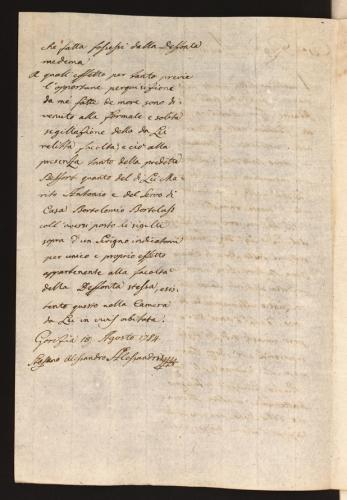 che fatta fosse stà dalla Deffonta
medema
A quall' effetto per tanto previe
l'opportune perquisizione
da me fatte de more sono di-
venuto alla formale e solita
sigillazione della da Lei
relitta facoltà, e ciò alla
presenza tanto della predetta
Beffort quanto del d. Lei Ma-
rito Antonio e del Servo di
Casa Bortolomio Bortolass
coll'aversi posto li sigilli
sopra d'un Scrigno indicatomi
per unico e proprio effetto
appartenente alla facoltà
della Deffonta stessa, esis-
tente questo nella Camera
da Lei in vita abitata.
Gorizia 18 Agosto 1784
Alessandro Alessandri